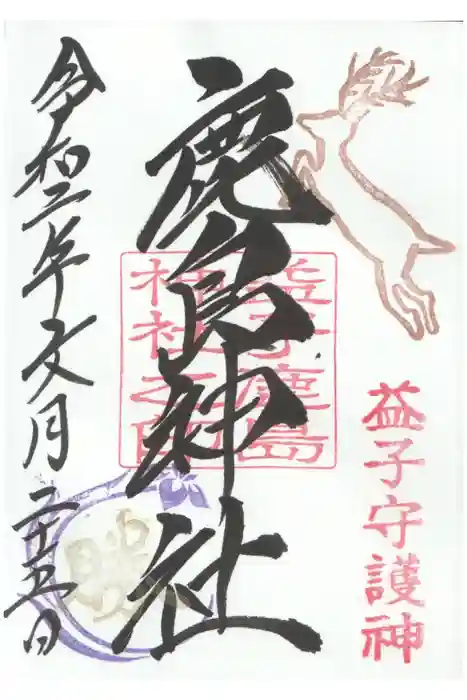 益子守護神
鹿島神社
益子鹿島
神社之印
令和二年文月二十五日